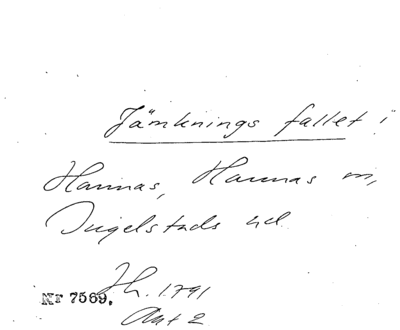 Jämknings fallet i
Hannas, Hannas sn,
Ingelstads hd.
Jh. 1791
Nr 7569.
Akt 2